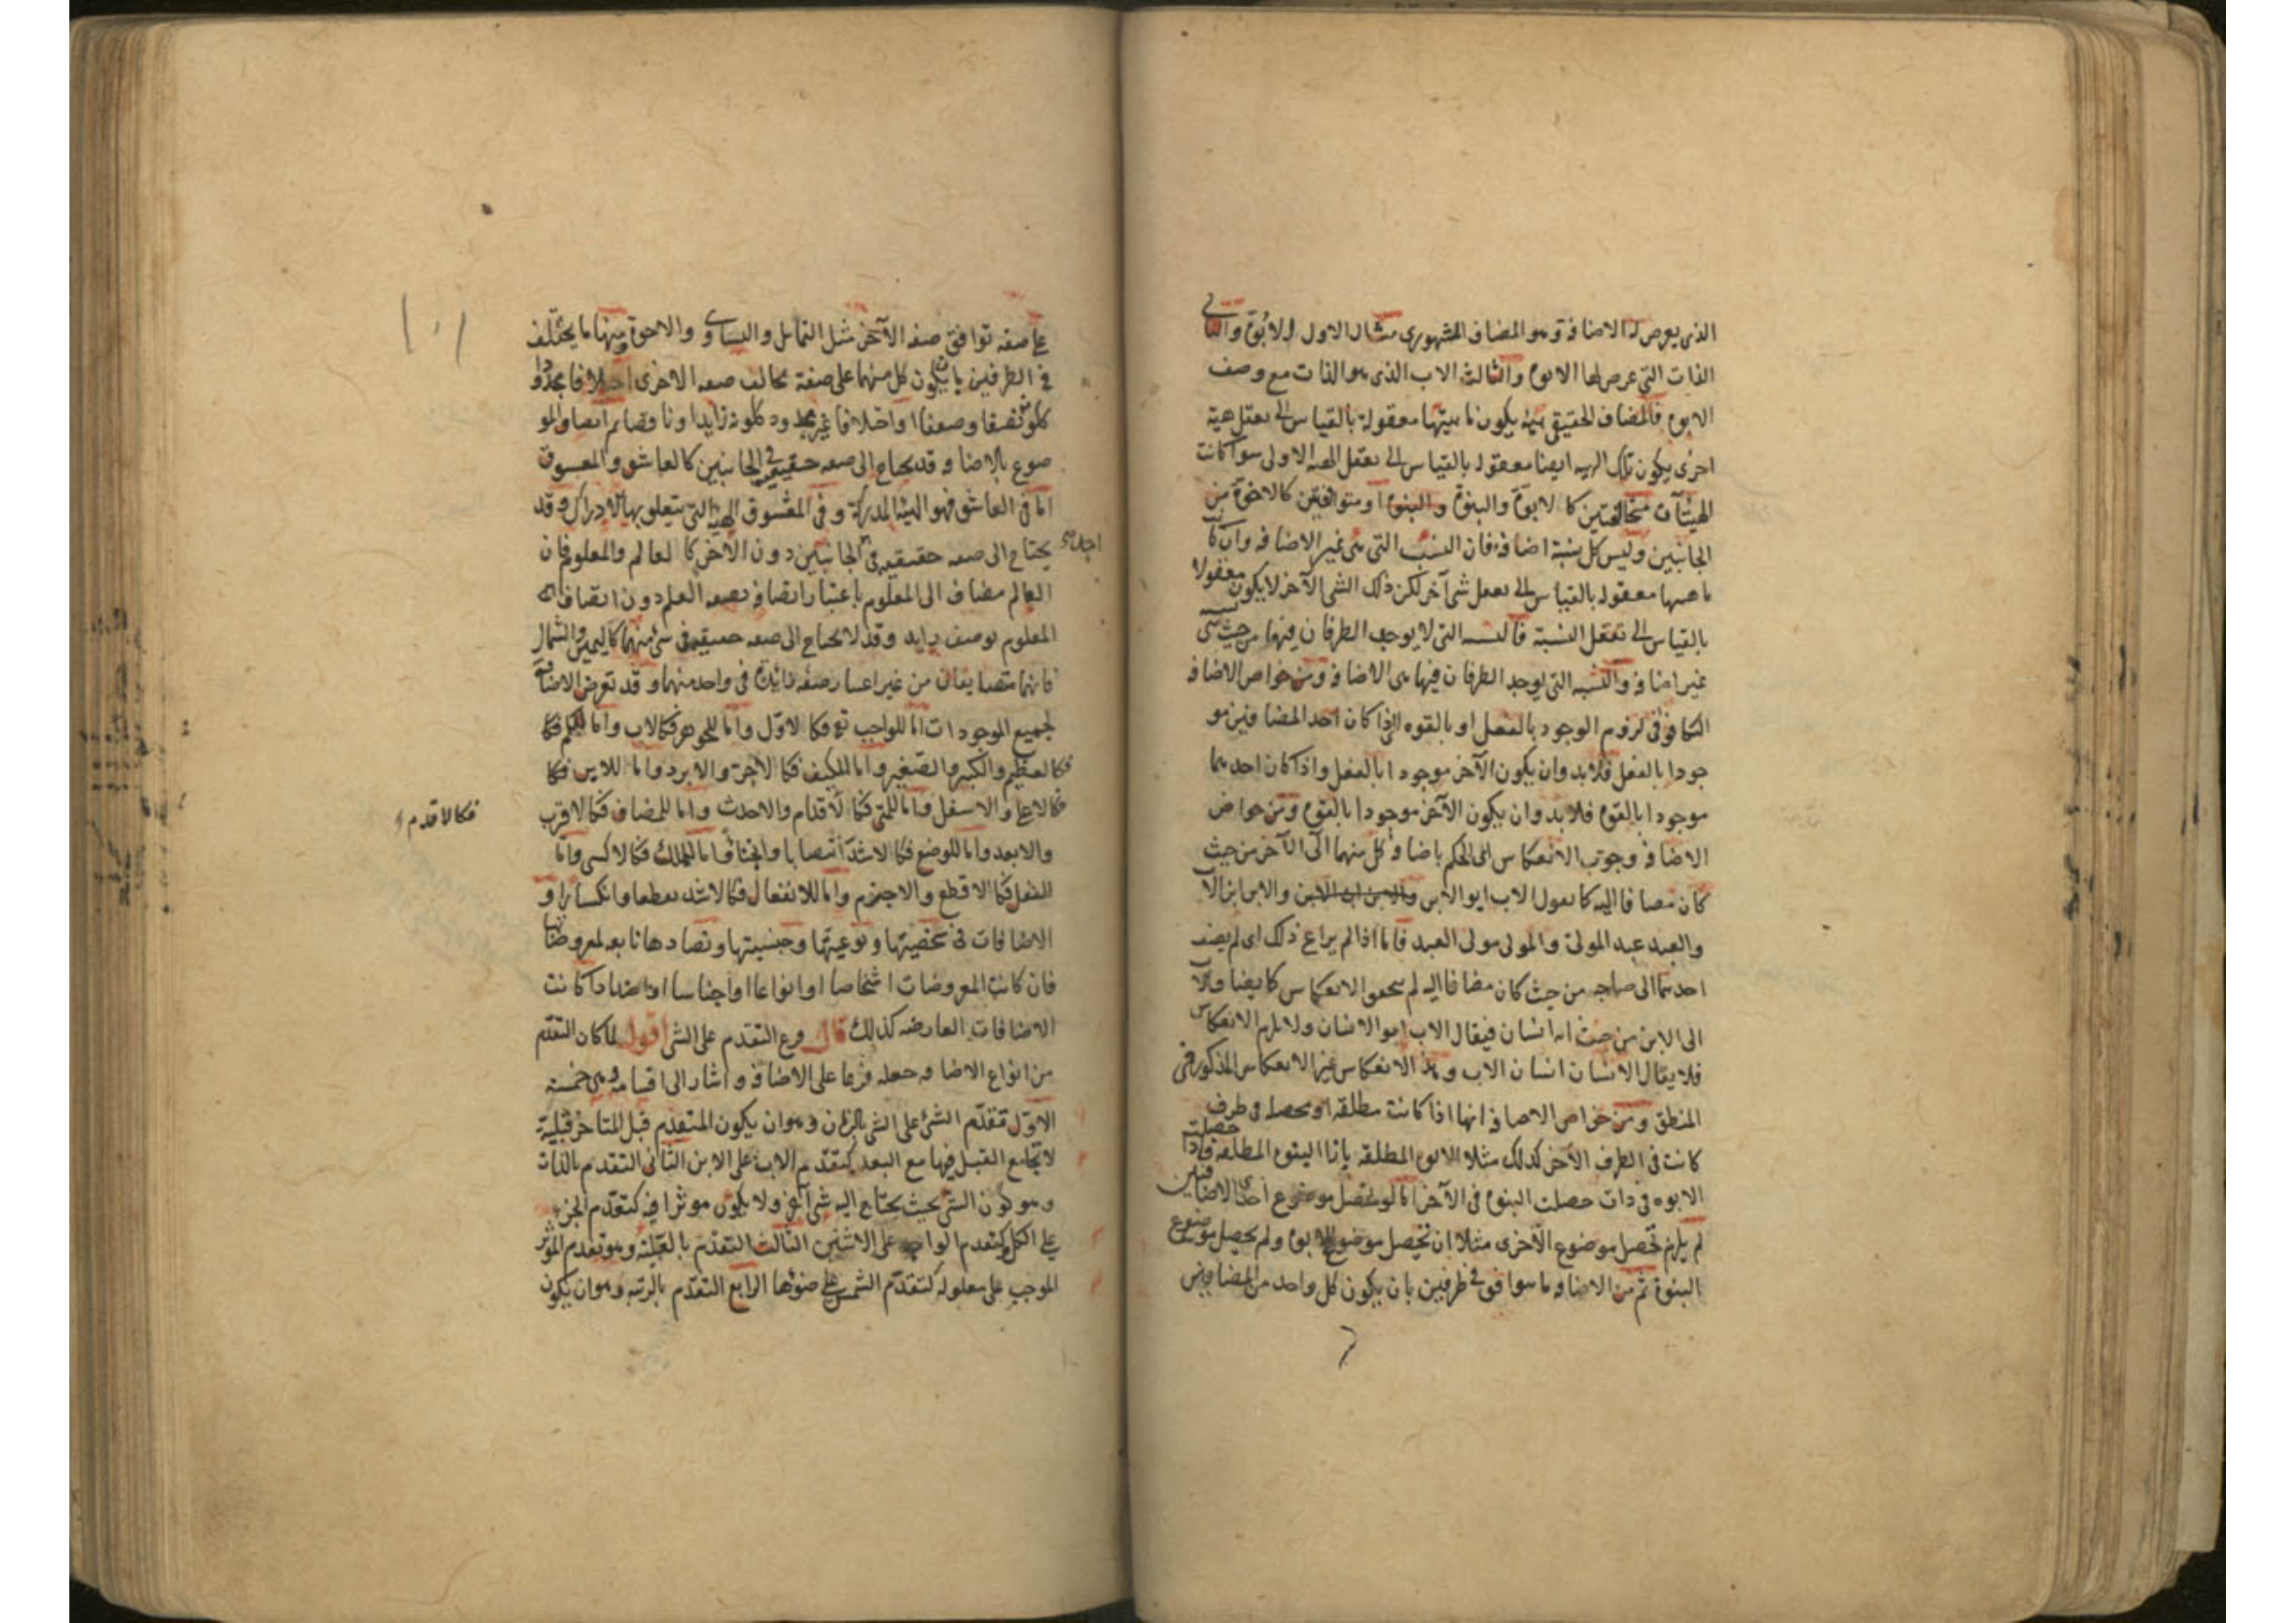 الذى يعرض له الاضافة وهو المضاف المشهورى مثال الاول الابوة والثانى
الذات التى عرض لها الابوة والثالث الاب الذى هو الذات مع وصف
الابوة فالمضاف الحقيقى هيئة يكون ماهيتها معقولة بالقياس الى تعقل هيئة
اخرى يكون تلك الهيئة ايضا معقولة بالقياس الى تعقل الهيئة الاولى سواء كانت
الهيئتان متخالفتين كالابوة والبنوة او متوافقتين كالاخوة من
الجانبين وليس كل نسبة اضافة فان النسب التى هى غير الاضافة وان كانت
ماهيتها معقولة بالقياس الى تعقل شئ آخر لكن ذلك الشئ الآخر لا يكون معقولا
بالقياس الى تعقل النسبة فالنسبة التى لا يوجد الطرفان فيها من حيث هى نسبة
غير اضافة والنسبة التى يوجد الطرفان فيها هى الاضافة ومن خواص الاضافة
التكافؤ فى لزوم الوجود بالفعل او بالقوة اذا كان احد المضافين مو
جودا بالفعل فلا بد وان يكون الآخر موجودا بالفعل واذا كان احدهما
موجودا بالقوة فلا بد وان يكون الآخر موجودا بالقوة ومن خواص
الاضافة وجوب الانعكاس اى الحكم باضافة كل منهما الى الآخر من حيث
كان مضافا اليه كما نقول الاب ابو الابن والابن ابن الاب
والعبد عبد المولى والمولى مولى العبد فاما اذا لم يراع ذلك اى لم يضف
احدهما الى صاحبه من حيث كان مضافا اليه لم يتحقق الانعكاس كما يضاف الاب
الى الابن من حيث انه انسان فيقال الاب ابو الانسان ولا يلزم الانعكاس
فلا يقال الانسان انسان الاب وهذا الانعكاس غير الانعكاس المذكور فى
المنطق ومن خواص الاضافة انها اذا كانت مطلقة او محصلة فى طرف
كانت فى الطرف الآخر كذلك مثلا الابوة المطلقة بازاء البنوة المطلقة فاذا حصلت
الابوة فى ذات حصلت البنوة فى الآخر اما لو تحصل موضوع احدى الاضافتين
لم يلزم تحصل موضوع الاخرى مثلا ان تحصل موضوع الابوة ولم يحصل موضوع
البنوة ثم من الاضافة ما يتوافق فى طرفين بان يكون كل واحد من المضافين
على صفة توافق صفة الآخر مثل التماثل والتساوى والاخوة ومنها ما يختلف
فى الطرفين بان يكون كل منهما على صفة تخالف صفة الاخرى اختلافا محدودا
ككونه نصفا وضعفا او اختلافا غير محدود ككونه زايدا وناقصا ثم اتصاف المو
ضوع بالاضافة قد يحتاج الى صفة حقيقية فى الجانبين كالعاشق والمعشوق
اما فى العاشق فهو الهيئة المدركة وفى المعشوق الهيئة التى يتعلق بها الادراك وقد
يحتاج الى صفة حقيقية فى احد الجانبين دون الآخر كالعالم والمعلوم فان
العالم مضاف الى المعلوم باعتبار اتصافه بصفة العلم دون اتصاف
المعلوم بوصف زايد وقد لا يحتاج الى صفة حقيقية فى شئ منهما كاليمين والشمال
فانهما متضايفان من غير اعتبار صفة زائدة فى واحد منهما وقد تعرض الاضافة
لجميع الموجودات اما للواجب تع فكالاول واما للجوهر فكالاب واما للكم فكا
فكالعظيم والكبير والصغير واما للكيف فكالاحر والابرد واما للاين فكا
فكالاعلى والاسفل واما للمتى فكالاقدام والاحدث واما للمضاف فكالاقرب
فكالاقدم
والابعد واما للوضع فكالاشد انتصابا وانحناء واما للملك فكالاكسى واما
للفعل فكالاقطع والاجزم واما للانفعال فكالاشد تقطعا وانكسارا و
الاضافات فى شخصيتها ونوعيتها وجنسيتها وتضادها تابعة لمعروضاتها
فان كانت المعروضات اشخاصا او انواعا او اجناسا او اضدادا كانت
الاضافات العارضة كذلك قال فرع التقدم على الشئ اقول لما كان التقدم
من انواع الاضافة جعله فرعا على الاضافة واشار الى اقسامه وهى خمسة
الاول تقدم الشئ على الشئ بالزمان وهو ان يكون المتقدم قبل المتاخر قبلية
لا يجامع القبل فيها مع البعد كتقدم الاب على الابن الثانى التقدم بالذات
وهو كون الشئ بحيث يحتاج اليه شئ آخر ولا يكون موثرا فيه كتقدم الجزء
على الكل وكتقدم الواحد على الاثنين الثالث التقدم بالعلية وهو تقدم الموثر
الموجب على معلوله كتقدم الشمس على ضوئها الرابع التقدم بالرتبة وهو ان يكون